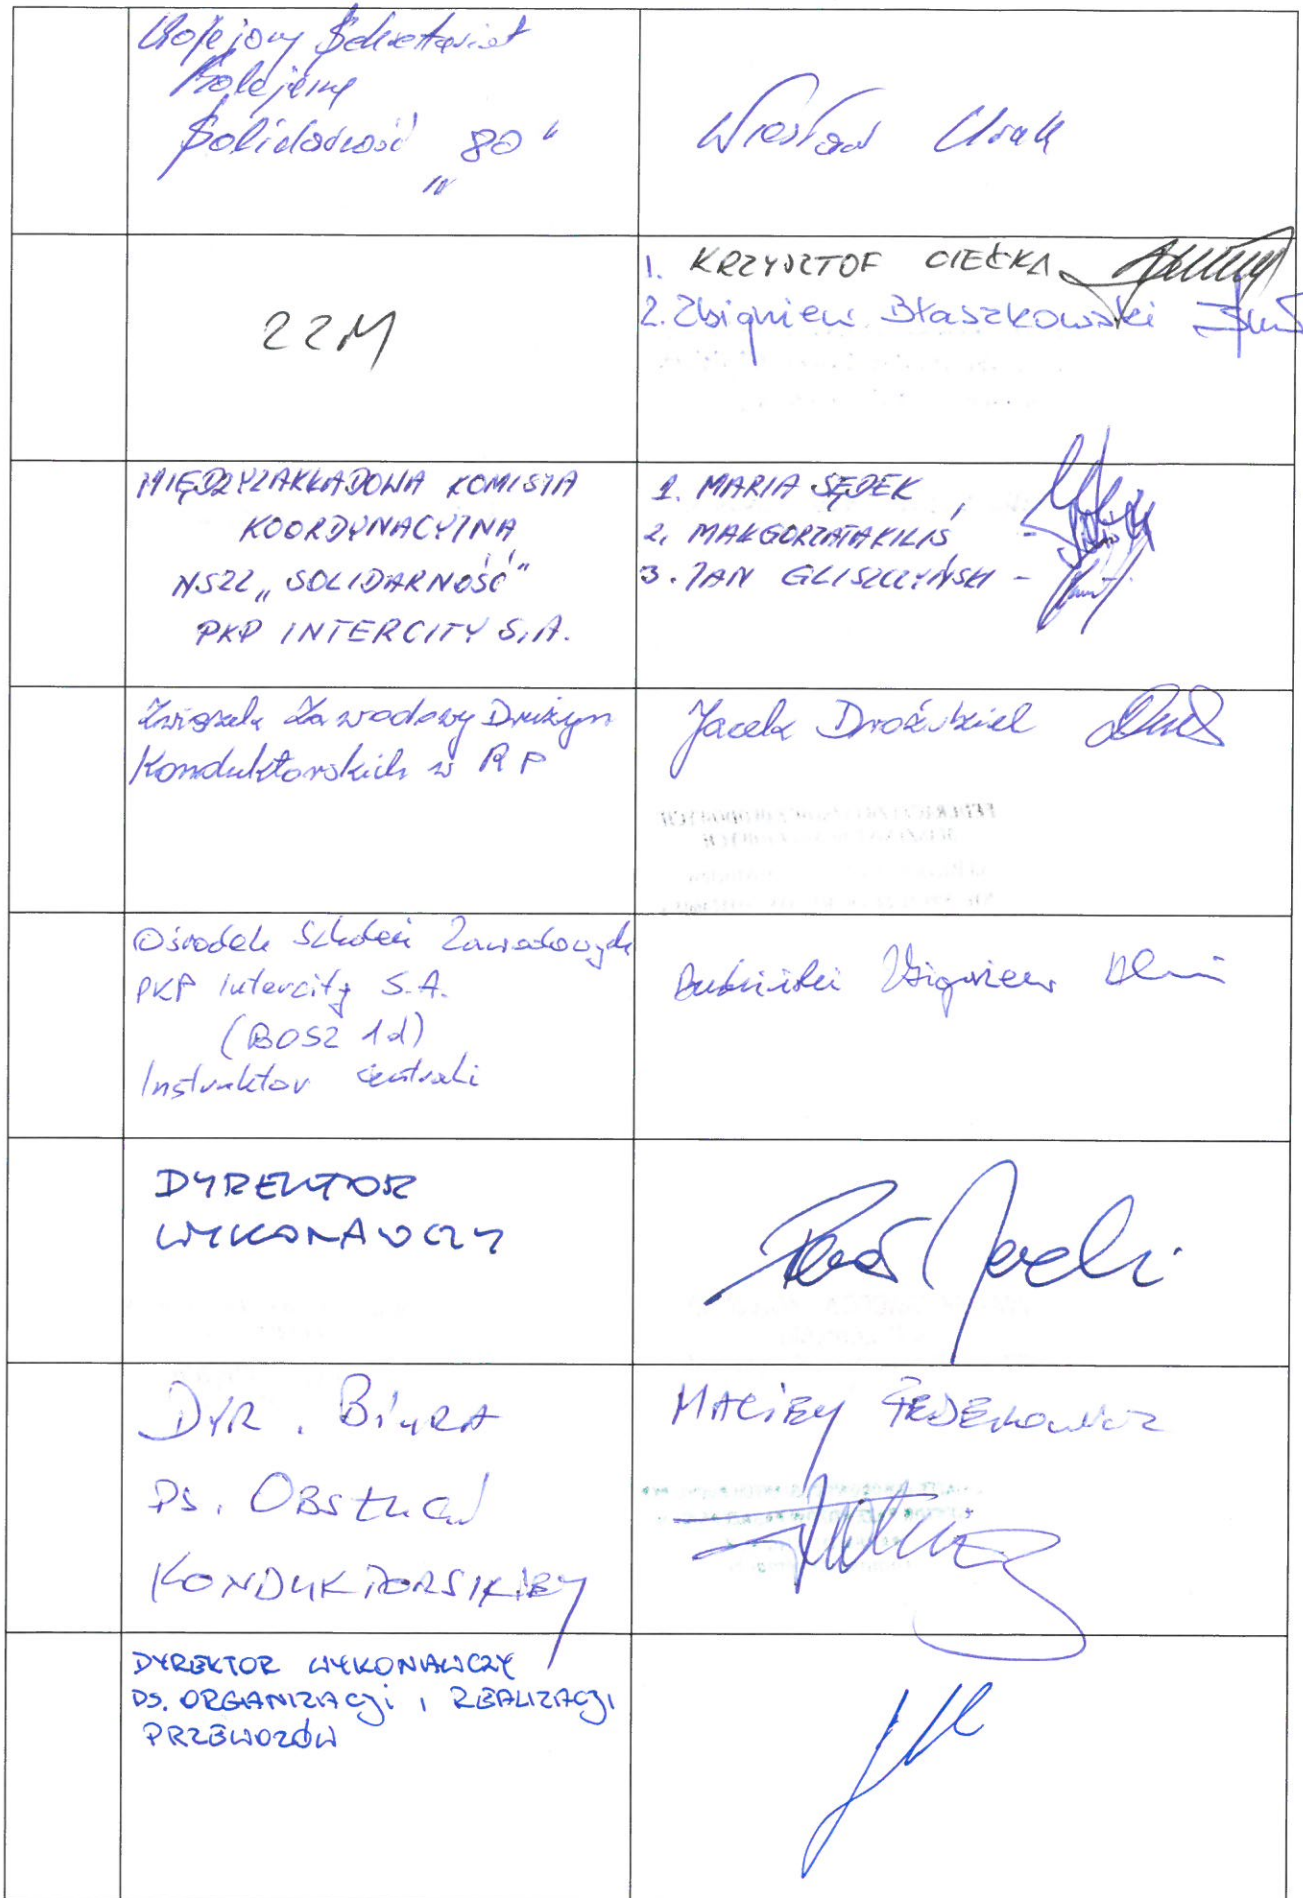 Solidarność "80"
Wiesław
ZZM
1. KRZYSZTOF CIEĆKA
2. Zbigniew Błaszkowski
MIĘDZYZAKŁADOWA KOMISJA
KOORDYNACYJNA
NSZZ „SOLIDARNOŚĆ"
PKP INTERCITY S.A.
1. MARIA SĘDEK
2. MAŁGORZATA KILIŚ
3. JAN GLISZCZYŃSKI -
Związek Zawodowy Drużyn
Konduktorskich w RP
Jacek
Ośrodek Szkoleń Zawodowych
PKP Intercity S.A.
(BOSZ 1d)
Instruktor centrali
Zbigniew
DYREKTOR
WYKONAWCZY
DYR. BIURA
DS. OBSŁUGI
KONDUKTORSKIEJ
MACIEJ
DYREKTOR WYKONAWCZY
DS. ORGANIZACJI I REALIZACJI
PRZEWOZÓW